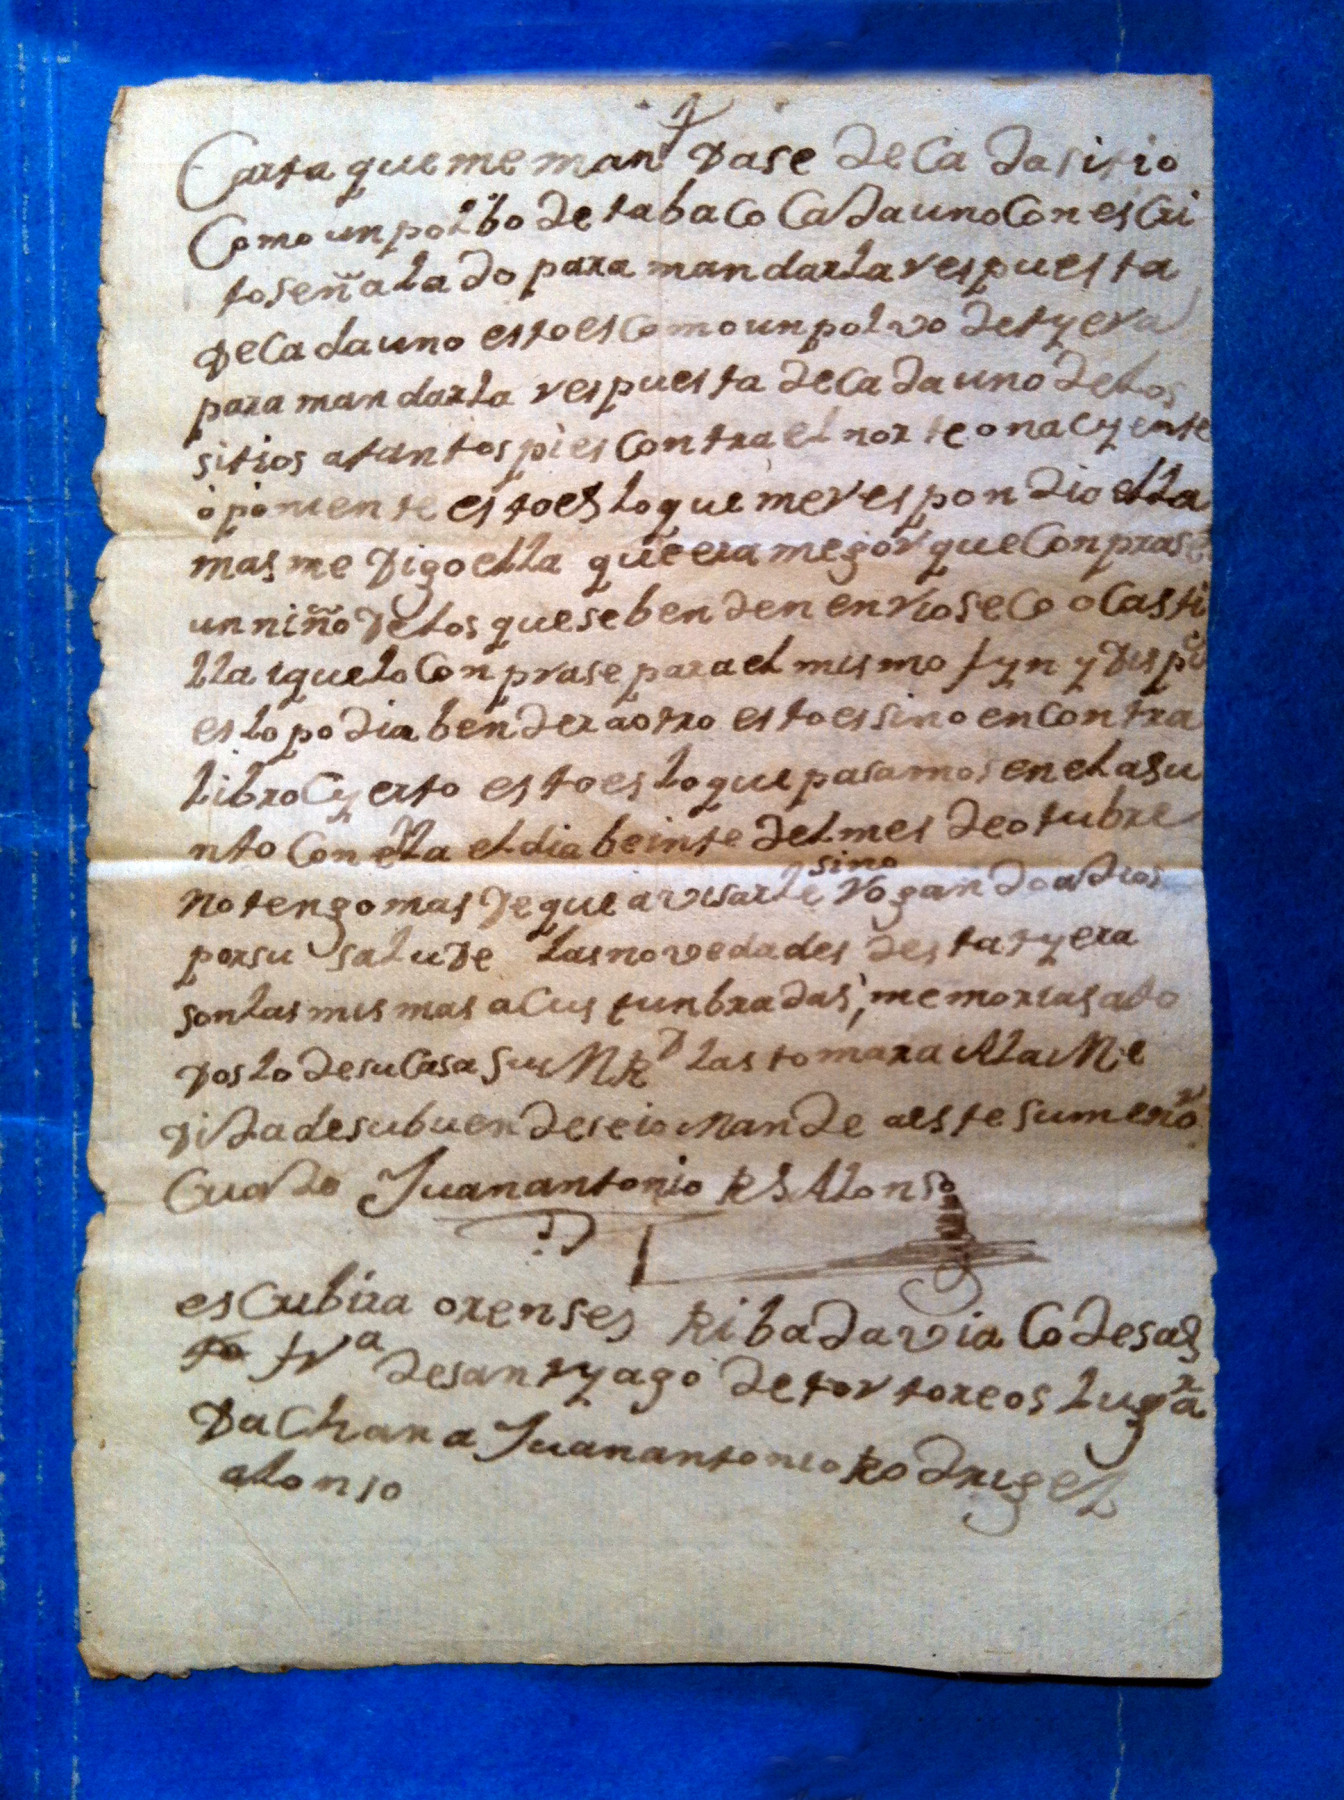 Carta que me man dase de Ca da sitio
Como un polbo de tabaco Cada uno Con es Cri
to señalado para mandar la respuesta
de Cada uno esto es Como un polvo de tyera
para mandar la respuesta de Cada uno de los
sitios a tantos pies Contra el norte o nacyente
o poniente esto es lo que me respondio ella
mas me digo ella que era megor que Conprase
un niño de los que se benden en rioseco o Casti
lla i que lo Conprase para el mismo fyn y
es lo podia bender a otro esto es sino encontra
libro Cyerto esto es lo que pasamos en el asu
nto Con ella el dia beinte del mes de otubre
no tengo mas de que avisarle sino rogando a dios
por su salude las novedades desta tyera
son las mismas acustunbradas, memorias a to
dos lo de su Casa las tomara a la me
dida de su buen deseio mande a este su menor
Criado Juan antonio Rs Alonso
esCribira orenses Ribadavia Codesas
fra de santyago de tortoreos lugar
da Chana Juan antonio Rodrigez
alonso